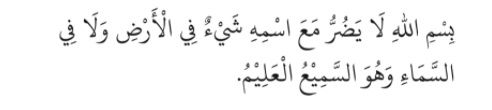 بِسْمِ اللهِ لَا يَضُرُّ مَعَ اسْمِهِ شَيْءٌ فِي الْأَرْضِ وَلَا فِي
السَّمَاءِ وَهُوَ السَّمِيْعُ الْعَلِيْمُ.